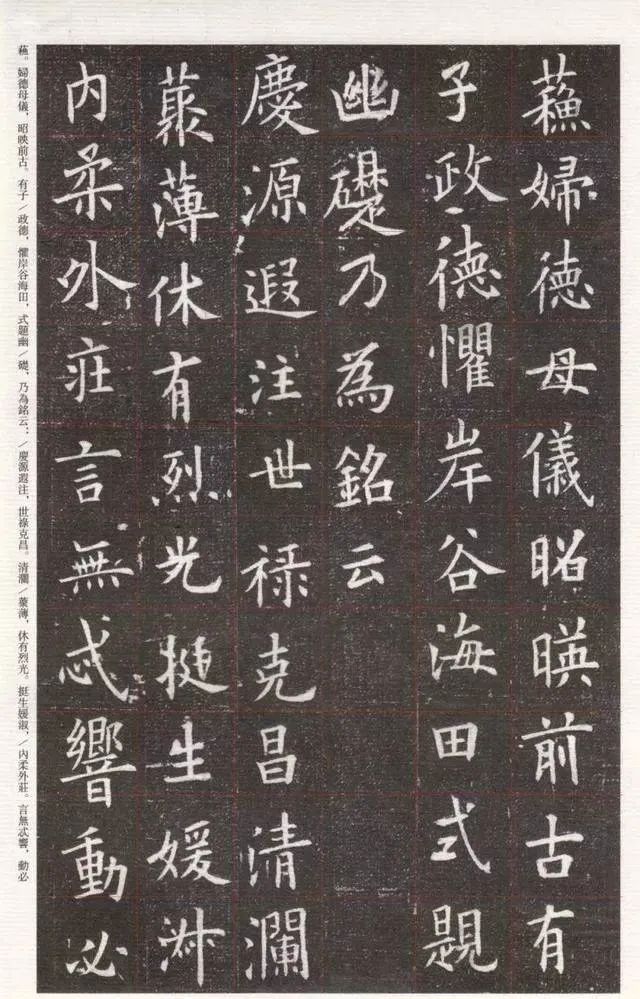 蘓婦德母儀昭暎前古有
子政德懼岸谷海田式題
幽礎乃為銘云
慶源遐注世禄克昌清瀾
藂薄休有烈光挺生媛淑
内柔外莊言無忒響動必
蘓。婦德母儀，昭映前古。有子／政德，懼岸谷海田，式題幽／礎，乃為銘云：／慶源遐注，世祿克昌。清瀾／藂薄，休有烈光。挺生媛淑，／內柔外莊。言無忒響，動必